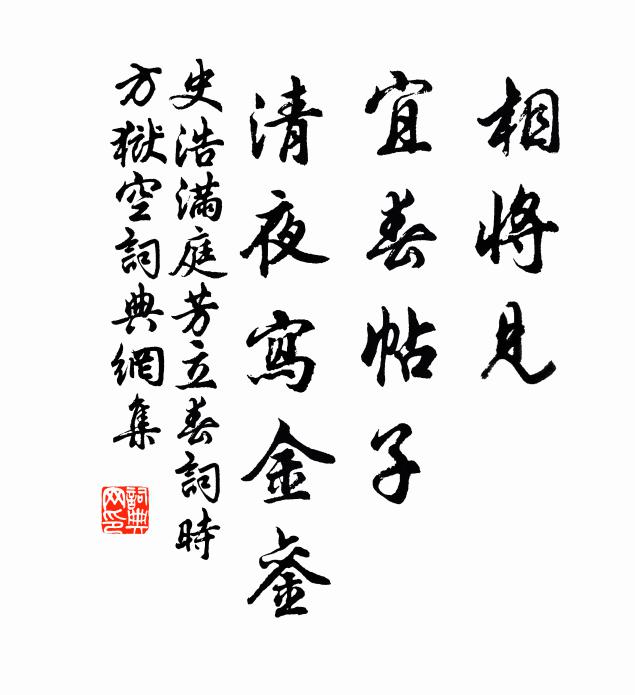 相將見
宜春帖子
清夜寫金銮
史浩滿庭芳立春詞時
方獄空詞典網集
詞典
网印